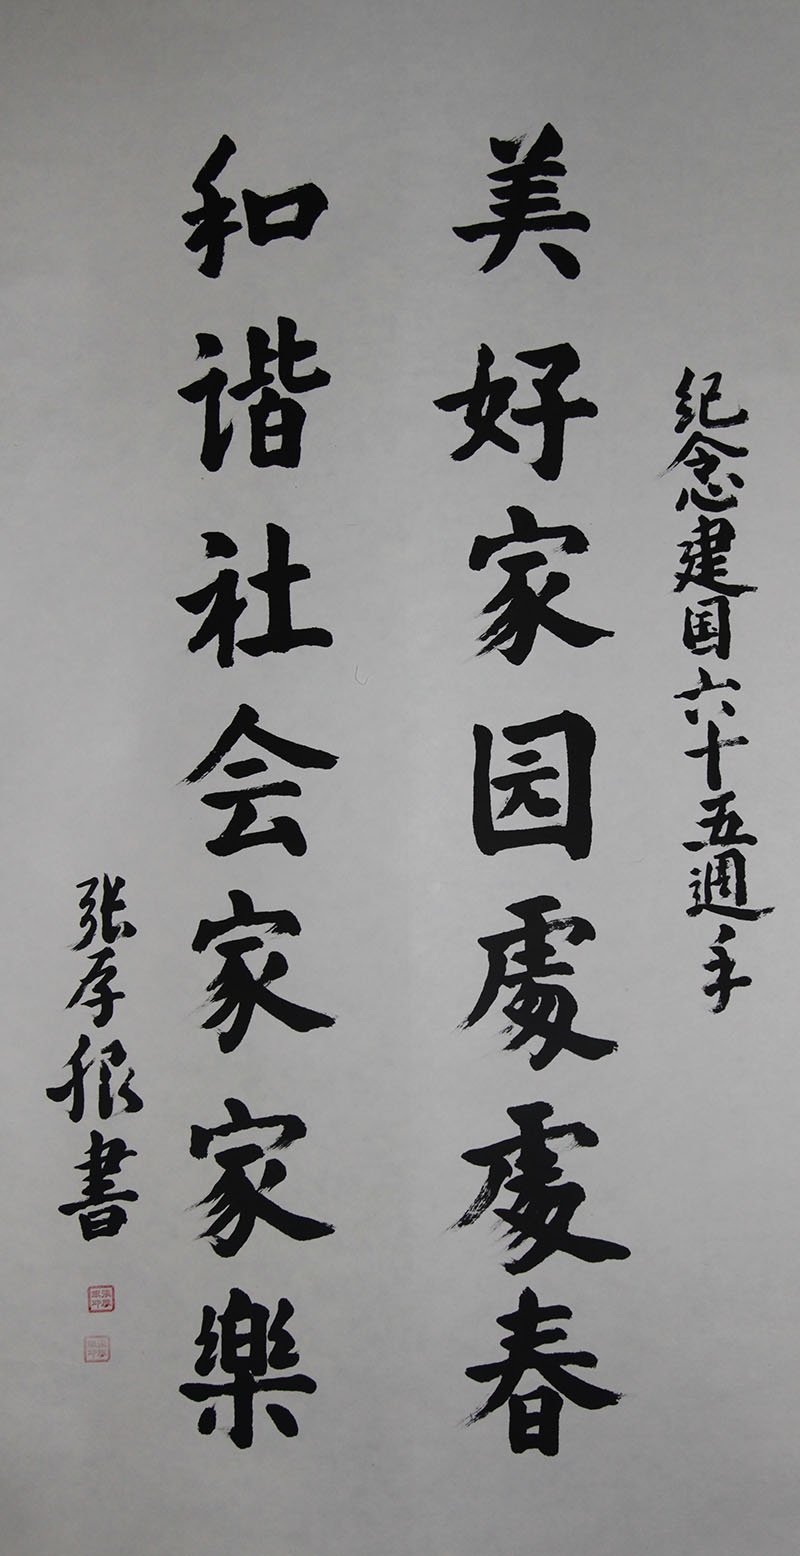 纪念建国六十五週年
美好家园處處春
和谐社会家家樂
张厚根書